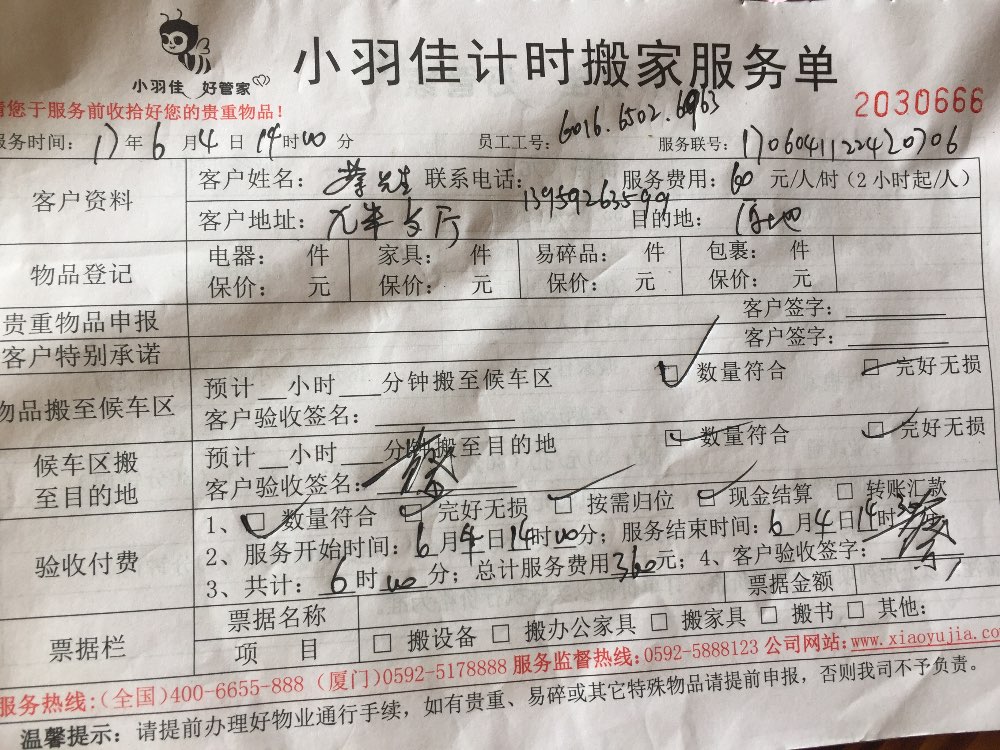 小羽佳 好管家
小羽佳计时搬家服务单
请您于服务前收拾好您的贵重物品！
2030666
服务时间： 17 年 6 月 4 日 14 时 00 分 员工工号：6016.6502.6963 服务联号：1706041122420706
客户资料
客户姓名： 蔡先生 联系电话：13959263599 服务费用：60 元/人/时（2小时起/人）
客户地址： 目的地：
物品登记
电器： 件 家具： 件 易碎品： 件 包裹： 件
保价： 元 保价： 元 保价： 元 保价： 元
贵重物品申报 客户签字：
客户特别承诺 客户签字：
物品搬至候车区
预计__小时___分钟搬至候车区 数量符合 完好无损
客户验收签名：
候车区搬
至目的地
预计__小时___分钟搬至目的地 数量符合 完好无损
客户验收签名： 蔡
验收付费
1、 数量符合 完好无损 按需归位 现金结算 转账汇款
2、服务开始时间：6月4日14时00分；服务结束时间：6月4日14时
3、共计：6时00分；总计服务费用360元；4、客户验收签字：蔡
票据栏
票据名称 票据金额
项 目 搬设备 搬办公家具 搬家具 搬书 其他：
服务热线：（全国）400-6655-888（厦门）0592-5178888 服务监督热线：0592-5888123 公司网站：www.xiaoyujia.com
温馨提示：请提前办理好物业通行手续，如有贵重、易碎或其它特殊物品请提前申报，否则我司不予负责。